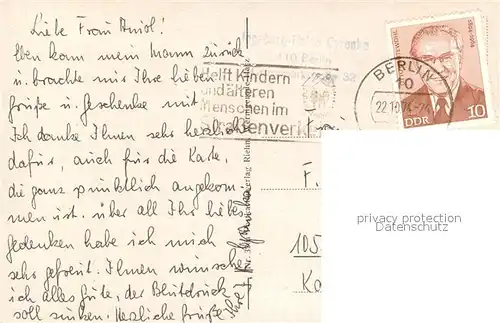 Liebe Frau
Eben kam mein Mann zurück
u. brachte mir Ihre lieben
Grüße u. Geschenke mit.
Ich danke Ihnen sehr herzlich
dafür, auch für die Karte,
die ganz pünktlich angekom-
men ist. über All Ihr liebes
gedenken habe ich mich
sehr gefreut. Ihnen wünsche
ich alles Gute, der Blutdruck
soll sinken. Herzliche Grüße
Ihre
110 Berlin
Helft Kindern
und älteren
Menschen im
Straßenverkehr
BERLIN
22.10.74
DDR
10
F
105
privacy protection
Datenschutz